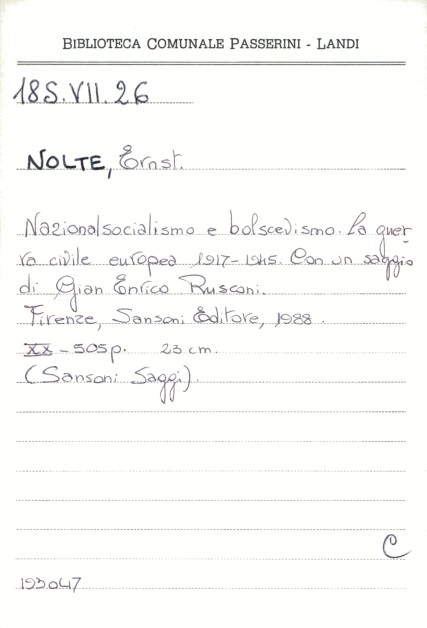 BIBLIOTECA COMUNALE PASSERINI - LANDI
18S.VII.26
NOLTE, Ernst.
Nazionalsocialismo e bolscevismo. La guer-
ra civile europea 1917-1945. Con un saggio
di Gian Enrico Rusconi.
Firenze, Sansoni Editore, 1988.
XX - 505 p. 23 cm.
(Sansoni Saggi).
C
193.047